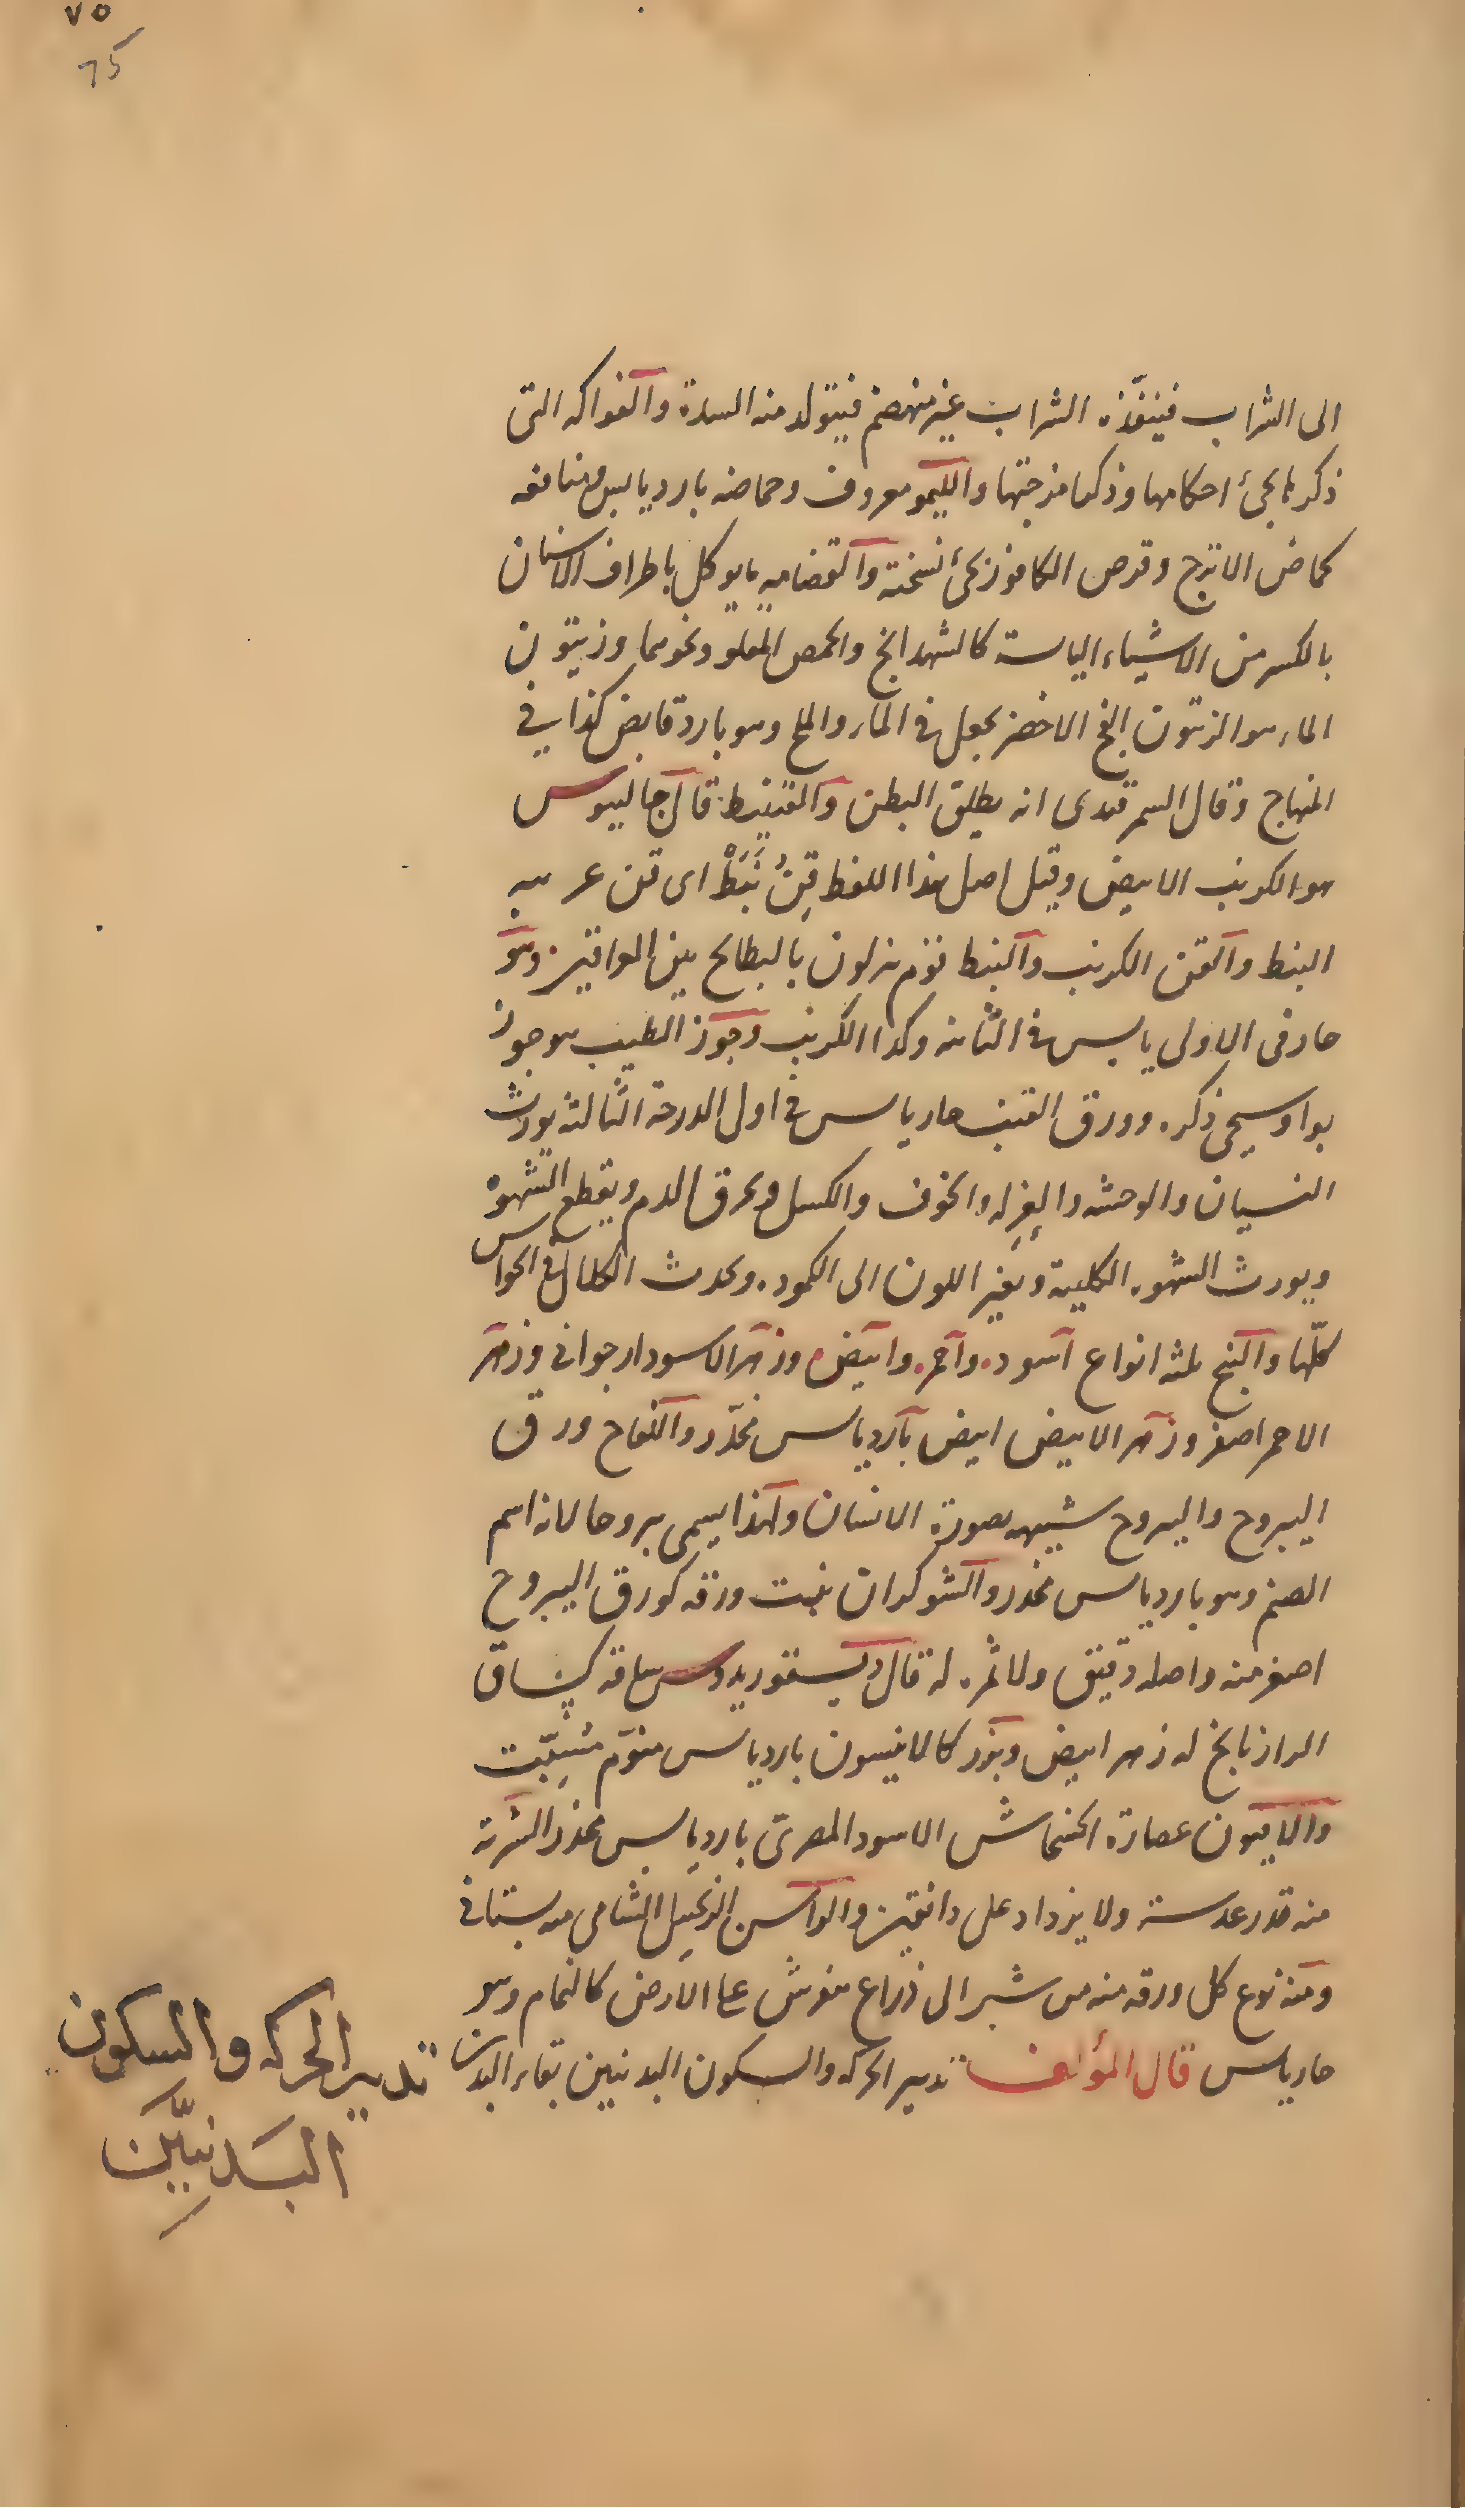 ٧٥
75
الى الشراب فينفّذه الشراب غير منهضم فيتولد منه السدة والفواكه التى
ذكرنا يجئ احكامها وذكر امزجتها والليمو معروف وحماضه بارد يابس ومنافعه
كحماض الاترج وقرص الكافور يجئ نسخته والقضامه ما يوكل باطراف الاسنان
بالكسر من الاشياء اليابسة كالشهدانج والحمص المقلو ونحوهما وزيتون
الماء هو الزيتون الفج الاخضر يجعل فى الماء والملح وهو بارد قابض كذا فى
المنهاج وقال السمرقندى انه يطلق البطن والقنبيط قال جالينوس
هو الكرنب الابيض وقيل اصل هذا اللفظ قِنُ نَبَطْ اى قن عربيه
النبط والقن الكرنب والنبط قوم ينزلون بالبطائح بين العراقين وهو
حار فى الاولى يابس فى الثانيه وكذا الكرنب وجوز الطيب هو جوز
بوا وسيجئ ذكره وورق القنب حار يابس فى اول الدرجة الثالثة يورث
النسيان والوحشه والعزله والخوف والكسل ويحرق الدم ويقطع الشهوة
ويورث الشهوه الكلبية ويغير اللون الى الكموده ويحدث الكلال فى الحواس
كلّها والبنج ثلثه انواع اسود واحمر وابيض وزهر الاسود ارجوانى وزهر
الاحمر اصفر وزهر الابيض ابيض بارد يابس مخدّر واللفاح ورق
اليبروح واليبروح شبيهه بصورة الانسان ولهذا يسمى يبروحا لانه اسم
الصنم وهو بارد يابس مخدر والشوكران نبت ورقه كورق اليبروح
اصغر منه واصله دقيق ولا ثمره له قال ديسقوريدوس ساقه كساق
الرازيانج له زهر ابيض وبزر كالانيسون بارد يابس منوّم مُسَبِّت
والافيون عصارة الخشخاش الاسود المصرىّ بارد يابس مخدر الشربة
منه قدر عدسة ولا يزداد على دانقين والراسن الزنجبيل الشامى منه بستانى
ومنه نوع كل ورقه منه من شبر الى ذراع مفرش على الارض كالنمام وهو
حار يابس قال المؤلف تدبير الحركه والسكون البدنيين بقاء البدن
تدبير الحركه والسكون
البَدنيَّين